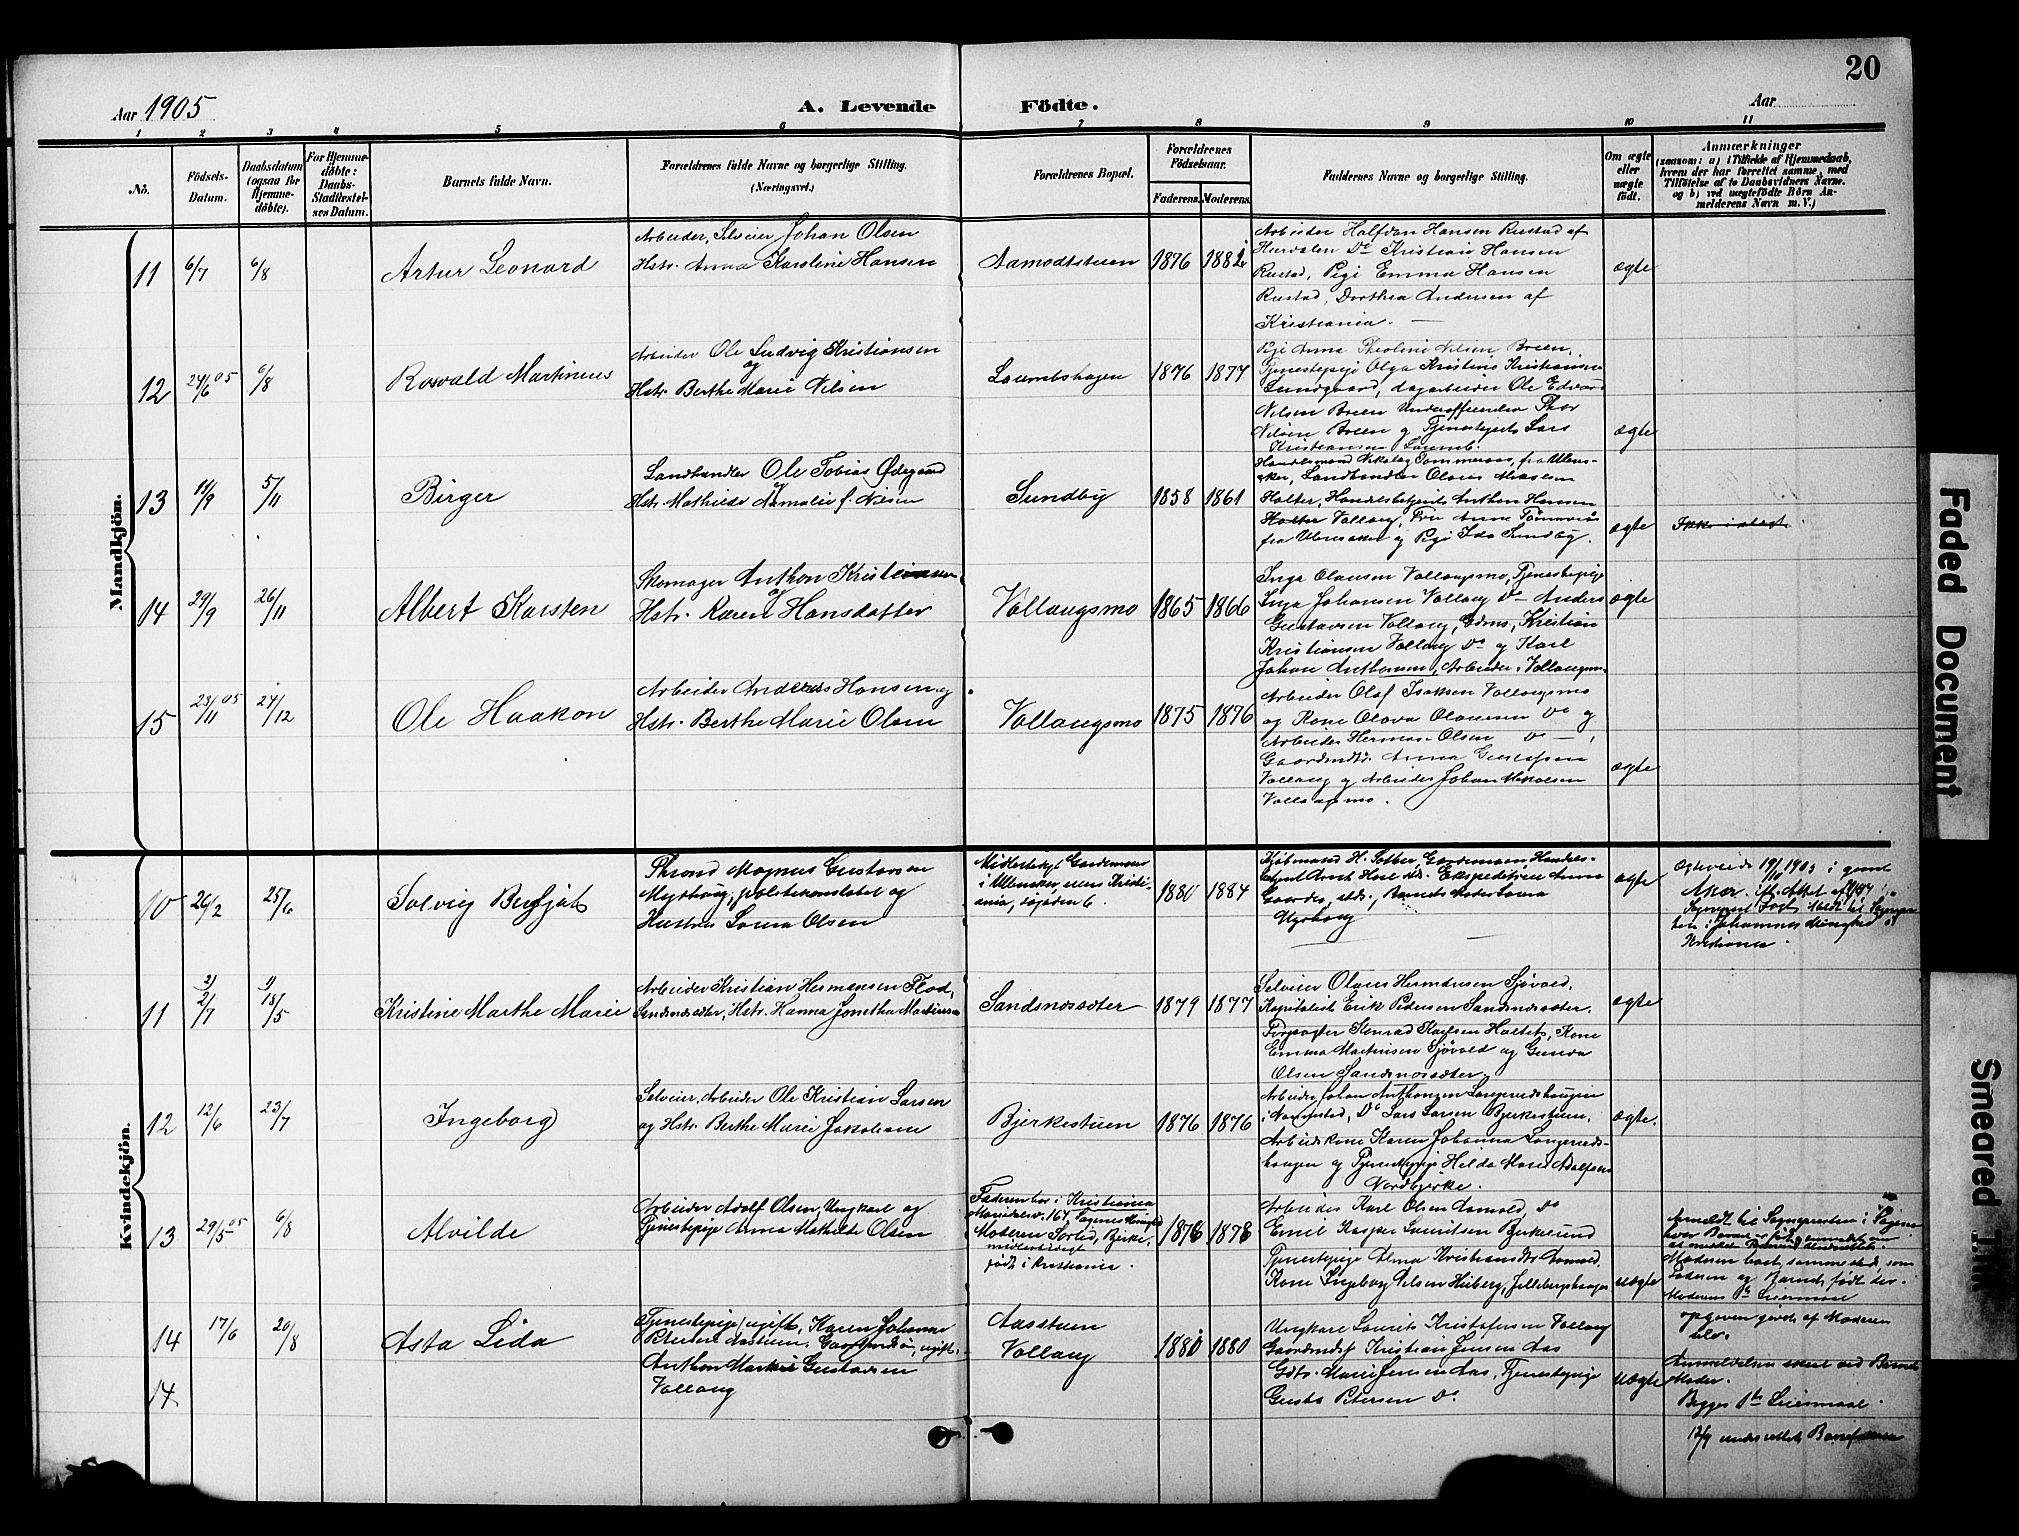 20
Aar 1905
A. Levende Födte.
Aar
1 2 3 4 5 6 7 8 9 10 11
No.
Födsels-
Datum.
Daabsdatum
(ogsaa for
Hjemme-
döbte).
For Hjemme-
döbte:
Daabs-
Stadfæstel-
ses Datum.
Barnets fulde Navn.
Forældrenes fulde Navne og borgerlige Stilling.
(Næringsvei.)
Forældrenes Bopæl.
Forældrenes
Födselsaar.
Faderens. Moderens.
Faddernes Navne og borgerlige Stilling.
Om ægte
eller
uægte
födt.
Anmærkninger
(saasom: a) i Tilfælde af Hjemmedaab,
hvem der har forrettet samme, med
Tilföielse af to Daabsvidners Navne,
og b) ved uægtefödte Börn An-
melderens Navn m. V.)
Mandkjön.
11 6/7 6/8 Artur Leonard
Arbeider, Selveier Johan Olsen
Hstr. Anna Karoline Hansen
Aamodtstuen 1876 1882
Arbeider Halfdan Hansen Rustad af
Hurdalen Do Kristian Hansen
Rustad, Pige Emma Hansen
Rustad, Dorthea Andersen af
Kristiania. —
ægte
12 24/6 05 6/8 Roswald Martinius
Arbeider Ole Ludvig Kristiansen
og
Hstr. Berthe Marie Nilsen
Laumbshagen 1876 1877
Pige Anna Theoline Nilsen Breen,
Tjenestepige Olga Kristine Kristiansen
Lundgaard, dagarbeider Ole Edvard
Nilsen Breen Underofficer Thor
Nilsen Breen og Tjenestegut Lars
Kristiansen Laumb.
ægte
13 11/9 5/11 Birger
Landhandler Ole Tobias Ødegaard
Hstr. Mathilde Amalie f. Nilsen
Sundby 1858 1861
Handelsmand Nikolay Tømmeraas, fra Ullens-
aker, Landhandler Olaus
Holter, Handelsbetjent Anthon Hansen
Holter Vollaug, Fru Anne Tømmeraas
fra Ullensaker og Pige Ida Sundby.
ægte
14 29/9 26/11 Albert Karsten
Skomager Anthon Kristiansen
og
Hstr. Karen Hansdatter
Vollaugsmo 1865 1866
Inga Olausen Vollaugsmo, Tjenestepige
Inga Johansen Vollaug Do — Anders
Gustavsen Vollaug, Gdms, Kristian
Kristiansen Vollaug Do og Karl
Johan Anthonsen, Arbeider, Vollaugsmo
ægte
15 23/11 05 24/12 Ole Haakon
Arbeider Anders Hansen og
Hstr. Berthe Marie Olsen
Vollaugsmo 1875 1876
Arbeider Olaf Isaksen Vollaugsmo
og Kone Olava Olausen Do og
Arbeider Herman Olsen Do —,
Gaardmdtr. Anna Gustafsen
Vollaug og Arbeider Johan Mikalsen
Vollaugsmo.
ægte
Kvindekjön.
10 26/2 25/6 Solvig Bergljot
Thrond Magnus Gustavsen
Myrhaug, politikonstabel og
Hustru Laura Olsen
Midlertidigt Gardemoen
i Ullensaker, ellers Kristi-
ania,
1880 1884
Kjøbmand H. Sæther, Gardemoen Handels-
agent Arnt Ekspeditrice Anna
Gaarder, Barnets Moder Laura
Myrhaug
ægte
Ægteviede 19/11 1903 i
Aker
Kristiania.
11 2/7 18/5 Kristine Marthe Marie
Arbeider Kristian Hermansen Flod,
Sandsnessæter, Hstr. Hanna Jonetha Martinsen
Sandsnessæter 1879 1877
Selveier Olaus Hermansen Sjøvold,
Kapitalist Erik Pedersen Sandsnessæter.
Forpagter Konrad Karlsen Holtet, Kone
Emma Martinsen Sjøvold og Gunda
Olsen Sandsnessæter.
ægte
12 12/6 23/7 Ingeborg
Selveier, Arbeider Ole Kristian Larsen
og Hstr. Berthe Marie Jakobsen
Bjerkestuen 1876 1876
Arbeider Johan Anthonsen Langerudshaugen
i Nannestad, Do Lars Larsen Bjerkestuen,
Arbeidskone Karen Johanna Langeruds-
haugen og Tjenestepige Hilda Marie Adolfsen
Nordbjerke.
ægte.
13 29/5 05 6/8 Alvilde
Arbeider Adolf Olsen, Ungkarl og
Tjenestepige Anna Mathilde Olsen
Faderen bor i Kristiania
Maridalsv. 167, Sagenes Menighed
Moderen Birke,
midlertidigt
født i Kristiania.
1876 1878
Arbeider Karl Olsen Aamold, Do
Emil Kasper Lauritsen Birkelund
Tjenestepige Alma Kristiansdtr Aamold.
Kone Ingeborg Nilsen Huberg,
uægte
Anmeldt til Sognepresten i Sagene
Moderen boet sammesteds, som
Faderen og Barnet født der.
Moderens 1ste Leiermaal
14 17/6 20/8 Asta Lida
Tjenestepige, ugift, Karen Johanne
Petersen Aasstuen, Gaardmdsøn, ugift,
Anthon Markus Gustavsen
Vollaug
Aasstuen
Vollaug
1880 1880
Ungkarl Laurits Kristofersen Vollaug
Gaardmdsf Kristian Jensen Aas
Gdtr. Marie Jensen Aas, Tjenestepige
Gusta Petersen Do
uægte
opgaven gjort af Moderen
selv.
Anmeldelsen skeet ved Barnets
Moder.
Begges 1ste Leiermaal.
12/9 underrettet Barnefaderen
14
Faded Document
Smeared Ink